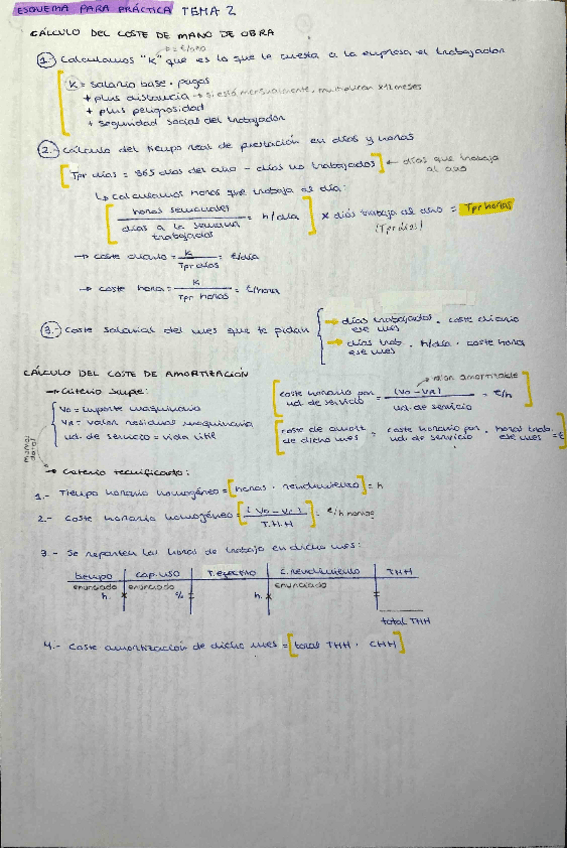 ESQUEMA PARA PRÁCTICA TEMA 2
CÁLCULO DEL COSTE DE MANO DE OBRA
1.- Calculamos "K" que es lo que le cuesta a la empresa el trabajador
K = salario base · pagas
+ plus distancia → si está mensualmente, multiplican x 11 meses
+ plus peligrosidad
+ seguridad social del trabajador
2.- Cálculo del tiempo real de prestación en días y horas
Tpr días = 365 días del año - días no trabajados ← días que trabaja al año
↳ calculamos horas que trabaja al día:
horas semanales / días a la semana trabajados = h/día x días trabaja al año = Tpr horas
(Tpr días)
→ coste diario = K / Tpr días = €/día
→ coste hora = K / Tpr horas = €/hora
3.- Coste salarial del mes que te pidan
→ días trabajados ese mes · coste diario
→ días trab. ese mes · h/día · coste hora
CÁLCULO DEL COSTE DE AMORTIZACIÓN
→ Criterio simple:
Vo = importe maquinaria
VR = valor residual maquinaria
ud. de servicio = vida útil
valor amortizable
coste horario por ud. de servicio = (Vo - VR) / ud. de servicio = €/h
coste de amort. de dicho mes = coste horario por ud. de servicio · horas trab. ese mes = €
→ Criterio tecnificado:
1.- Tiempo horario homogéneo = horas · rendimiento = h
2.- Coste horario homogéneo = (Vo - Vr) / T.H.H = €/h
3.- Se reparten las horas de trabajo en dicho mes:
tiempo cap. uso T. efectivo C. rendimiento THH
enunciado enunciado enunciado
h. x % = h. x =
total THH
4.- Coste amortización de dicho mes = total THH · CHH